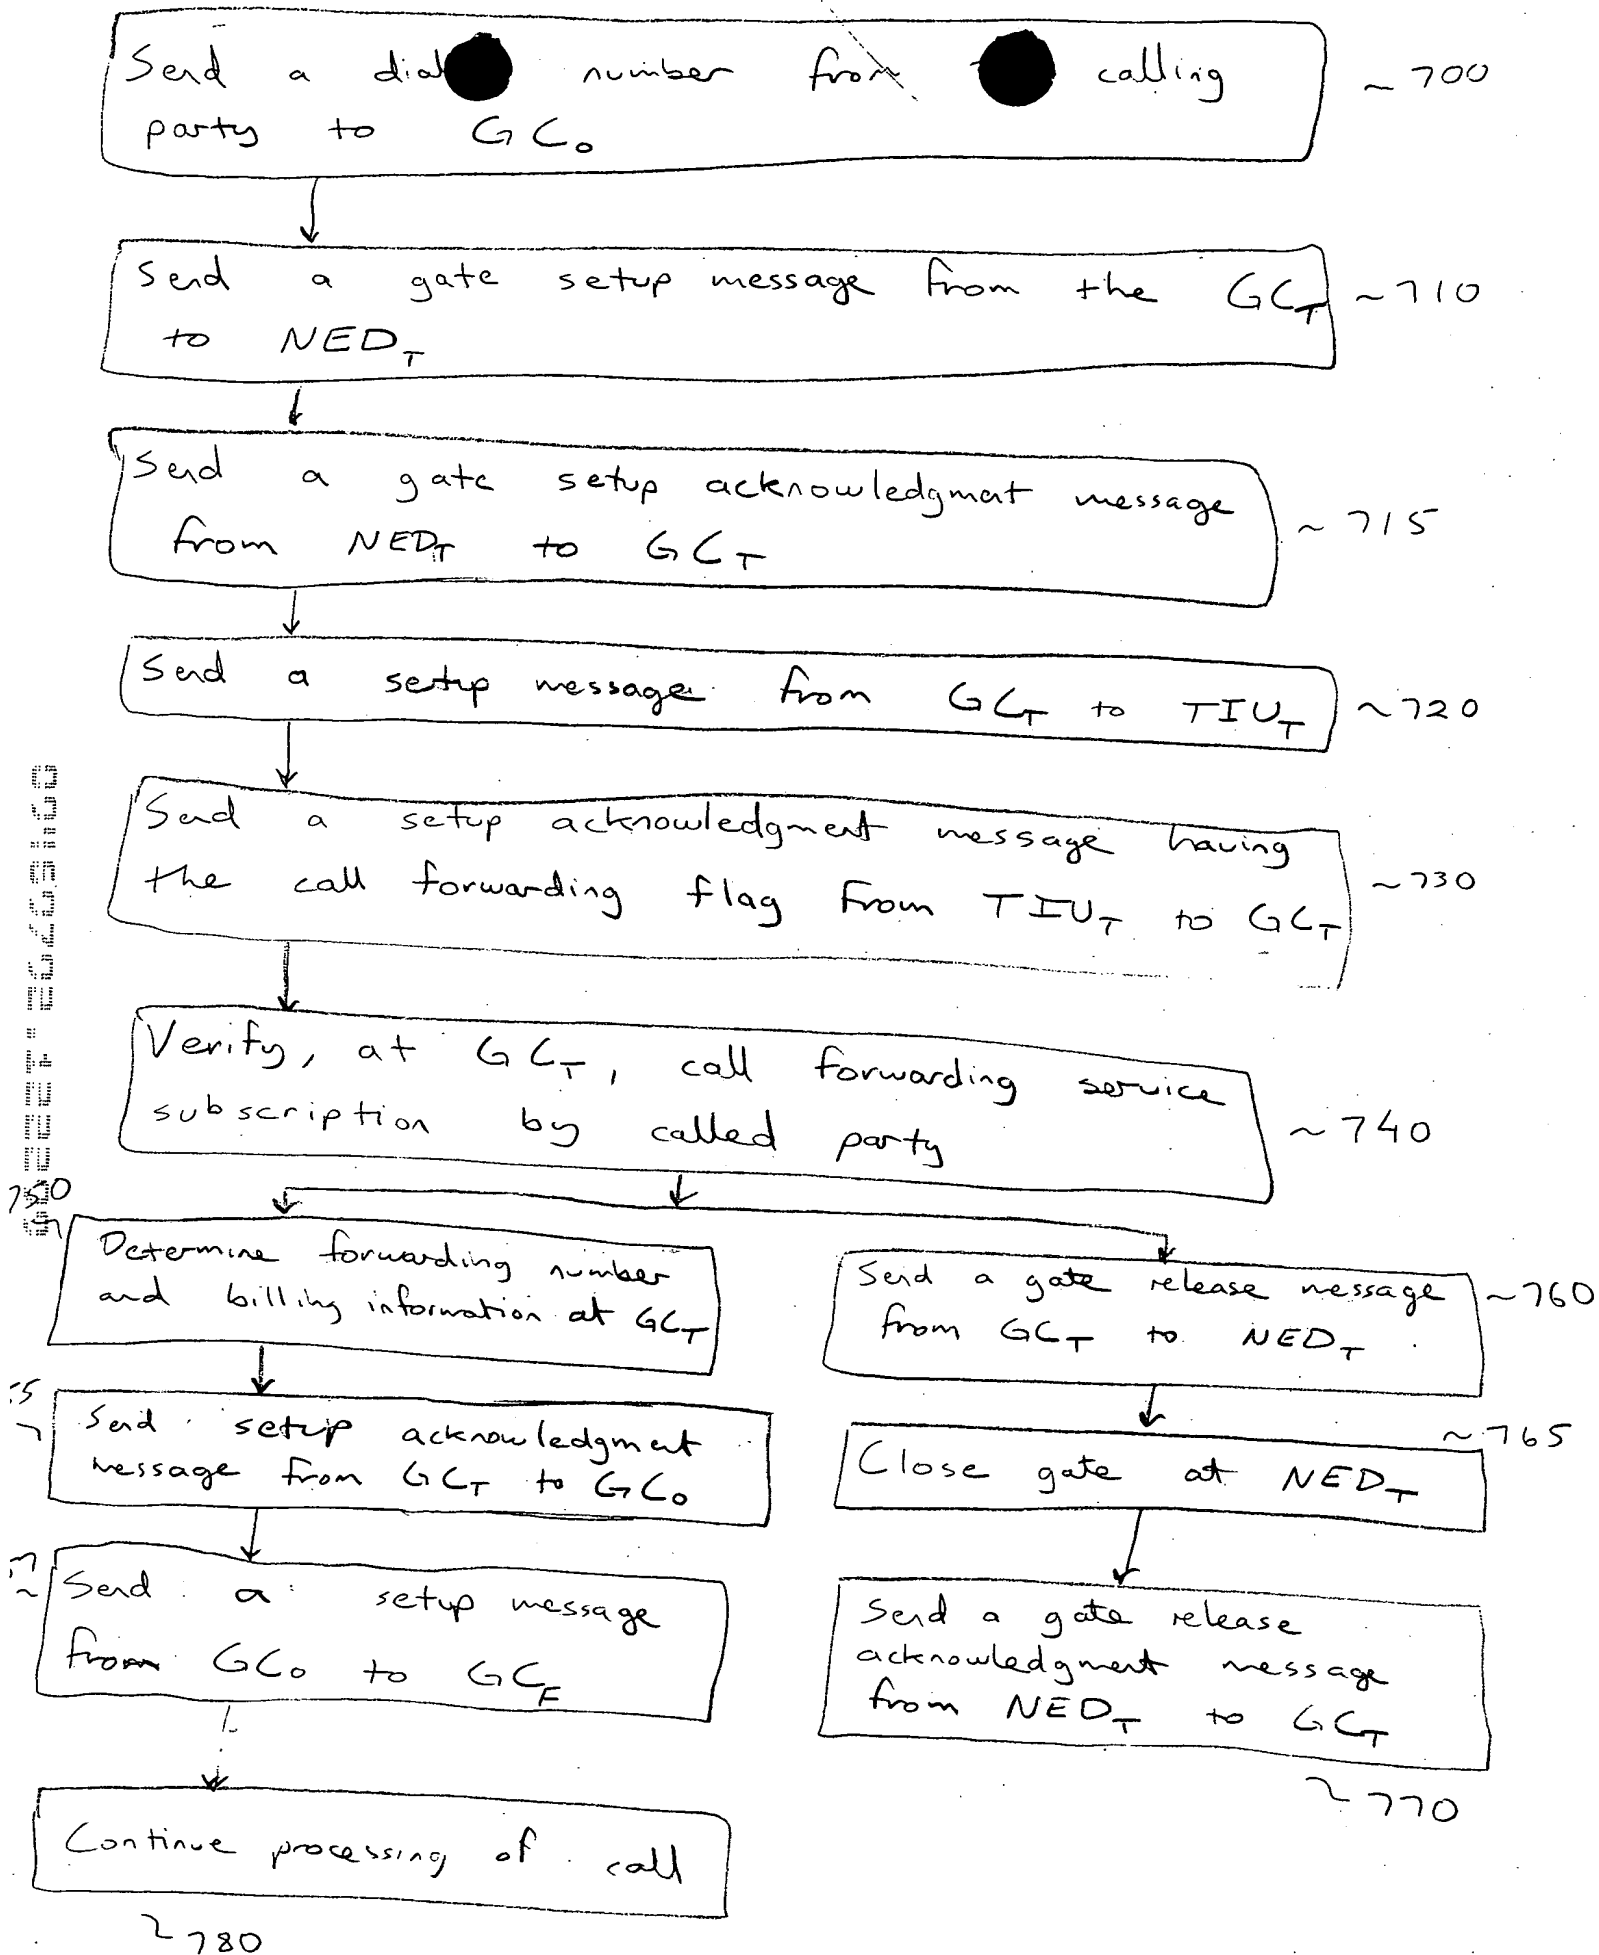 Send a number from calling ~700
party to GCo
Send a gate setup message from the GCT ~710
to NEDT
Send a gate setup acknowledgmat message
from NEDT to GCT ~715
Send a setup message from GCT to TIUT ~720
Send a setup acknowledgment message having
the call forwarding flag from TIUT to GCT ~730
Verify, at GCT, call forwarding service
subscription by called party ~740
750
Determine forwarding number
and billing information at GCT
Send setup acknowledgment
message from GCT to GCo
Send a setup message
from GCo to GCF
Continue processing of call
~780
Send a gate release message ~760
from GCT to NEDT
~765
Close gate at NEDT
Send a gate release
acknowledgment message
from NEDT to GCT
~770